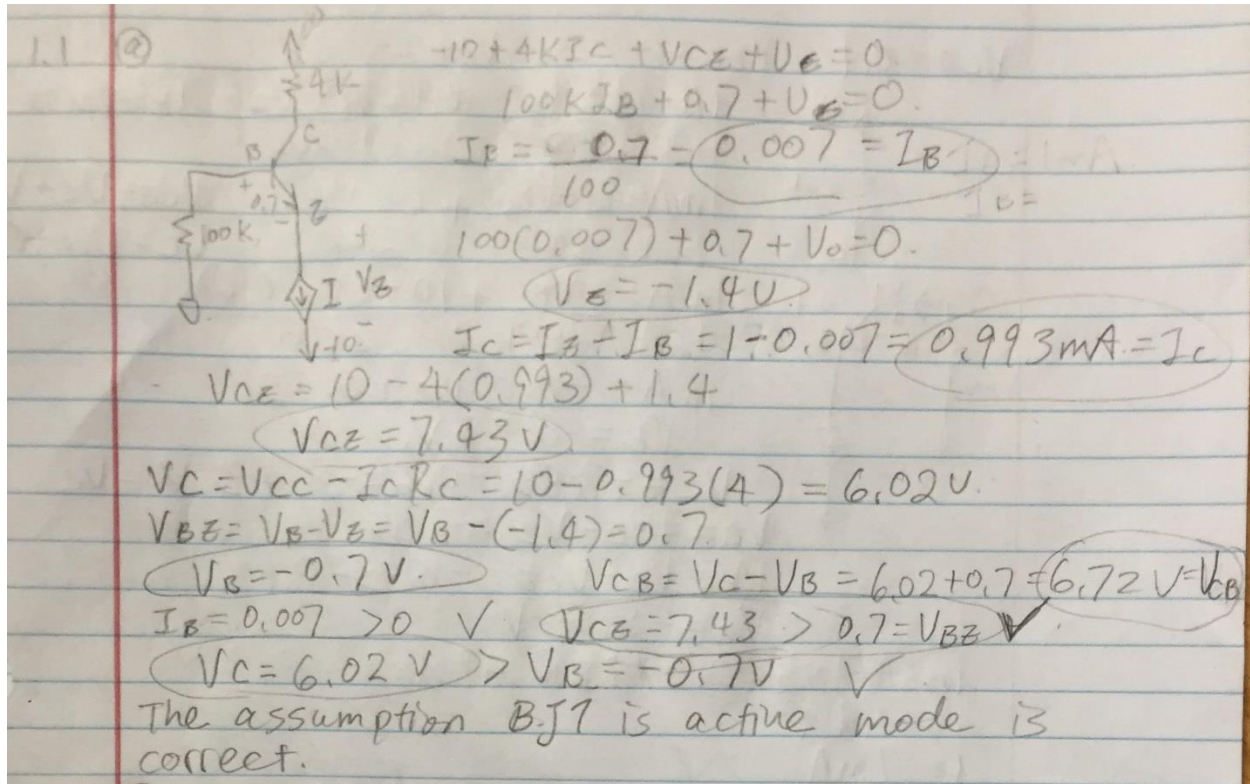 1.1 (a)
10
4K
C
B
+
0.7
-
E
100K
+
I VE
-
-10
-10 + 4KIC + VCE + VE = 0
100KIB + 0.7 + VE = 0.
IB = 0.7 / 100 = 0.007 = IB
100(0.007) + 0.7 + Vo = 0.
VE = -1.4V.
IC = IE - IB = 1 - 0.007 = 0.993mA = IC
VCE = 10 - 4(0.993) + 1.4
VCE = 7.43V
VC = VCC - ICRC = 10 - 0.993(4) = 6.02V.
VBE = VB - VE = VB - (-1.4) = 0.7
VB = -0.7V. VCB = VC - VB = 6.02 + 0.7 = 6.72V = VCB
IB = 0.007 > 0 ✓ VCE = 7.43 > 0.7 = VBE ✓
VC = 6.02 V > VB = -0.7V ✓
The assumption BJT is active mode is
correct.